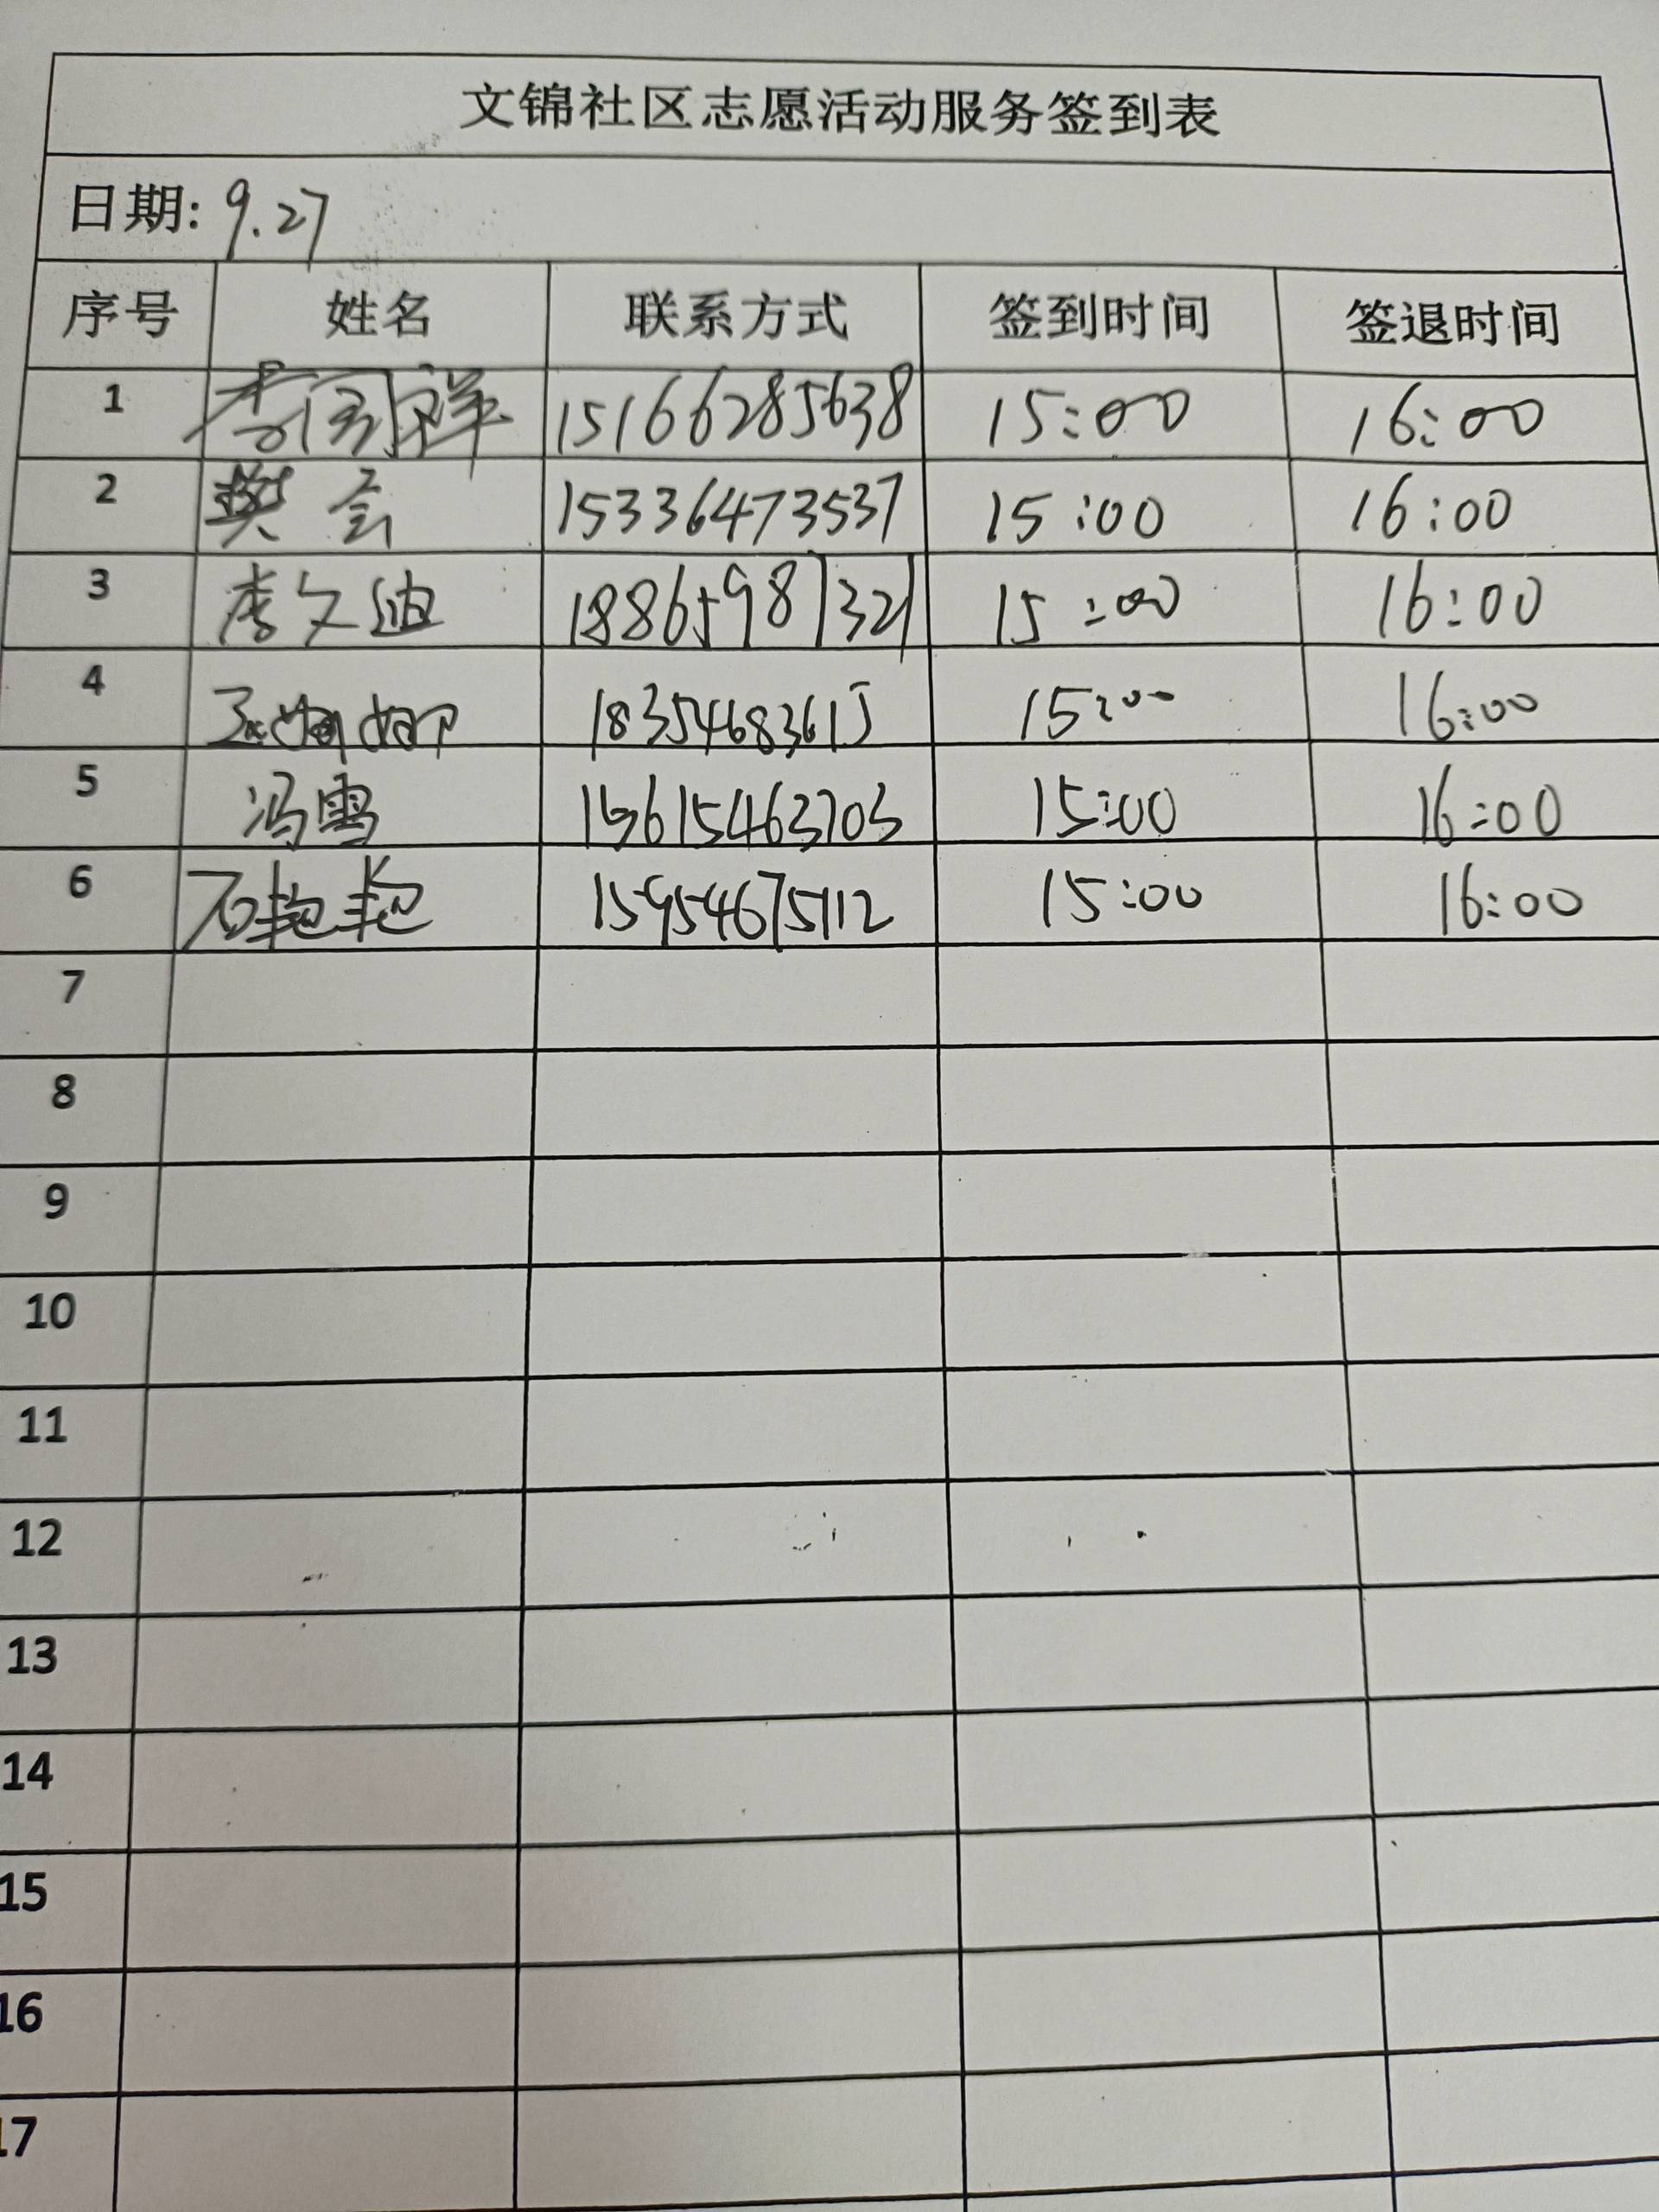 文锦社区志愿活动服务签到表
日期: 9.27
序号 姓名 联系方式 签到时间 签退时间
1 15166285638 15:00 16:00
2 樊会 15336473537 15:00 16:00
3 李文迪 18865987321 15:00 16:00
4 18354683615 15:00 16:00
5 冯雪 15615463703 15:00 16:00
6 石艳艳 15954675112 15:00 16:00
7
8
9
10
11
12
13
14
15
16
17